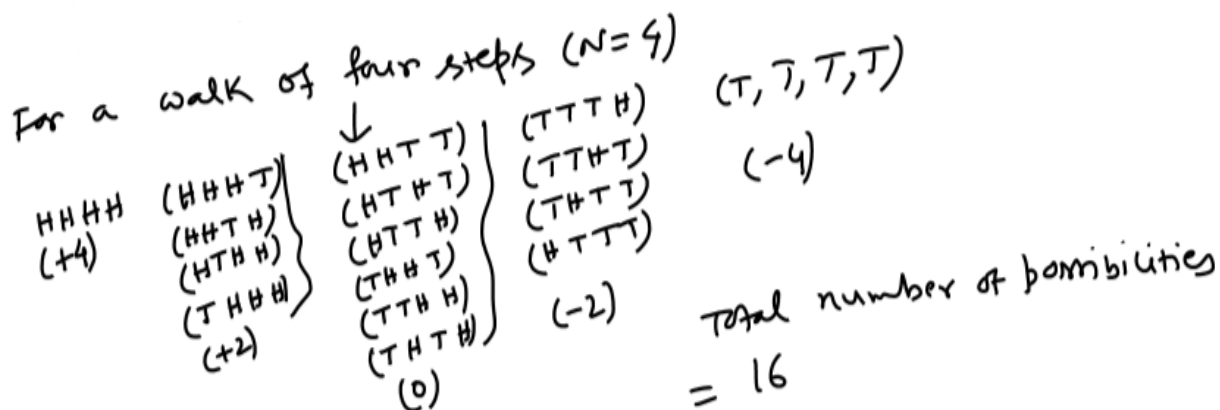 For a walk of four steps (N=4)
HHHH
(+4)
(HHHT)
(HHTH)
(HTHH)
(THHH)
(+2)
(HHTT)
(HTHT)
(HTTH)
(THHT)
(TTHH)
(THTH)
(0)
(TTTH)
(TTHT)
(THTT)
(HTTT)
(-2)
(T, T, T, T)
(-4)
Total number of possibilities
= 16